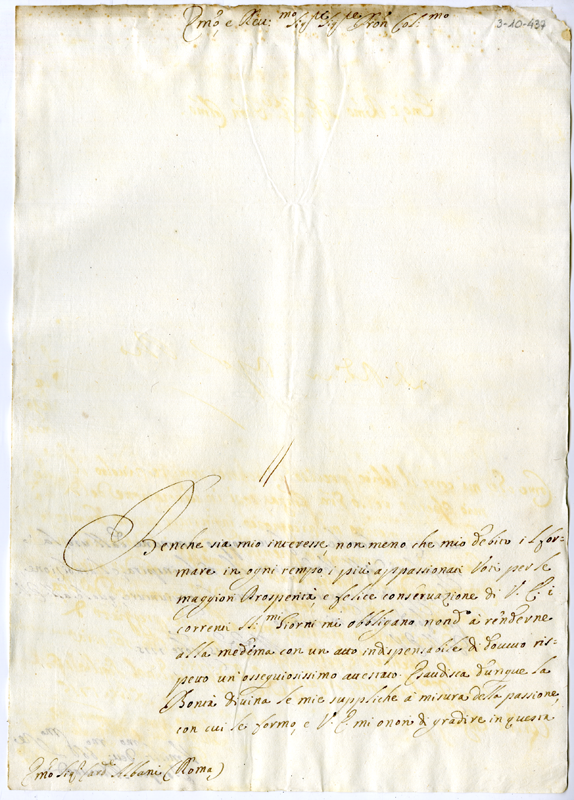 Em̃o, e Reu:mo Sigre Sigre Pron Col:mo
3-10-437
Benche sia mio interesse non meno che mio debito il for-
mare in ogni tempo i più appassionati Voti per le
maggiori Prosperità, e felice conseruazione di V. E. i
correnti SS.mi Giorni mi obbligano nondo a renderne
alla medema con un atto indispensabile di douuto ris-
petto un'ossequiosissimo attestato. Esaudisca dunque la
Bontà diuina le mie suppliche a misura della passione,
con cui le formo, e V. E. mi onori di gradire in questa
Em̃o Sigr Card Albani (Roma)